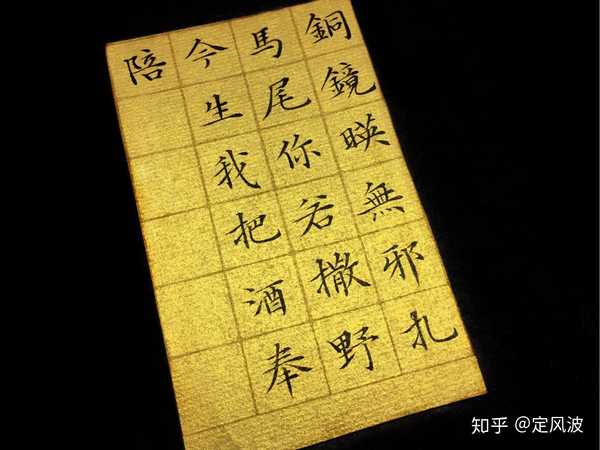 銅鏡暎無邪扎
馬尾你若撒野
今生我把酒奉
陪
知乎 @定风波